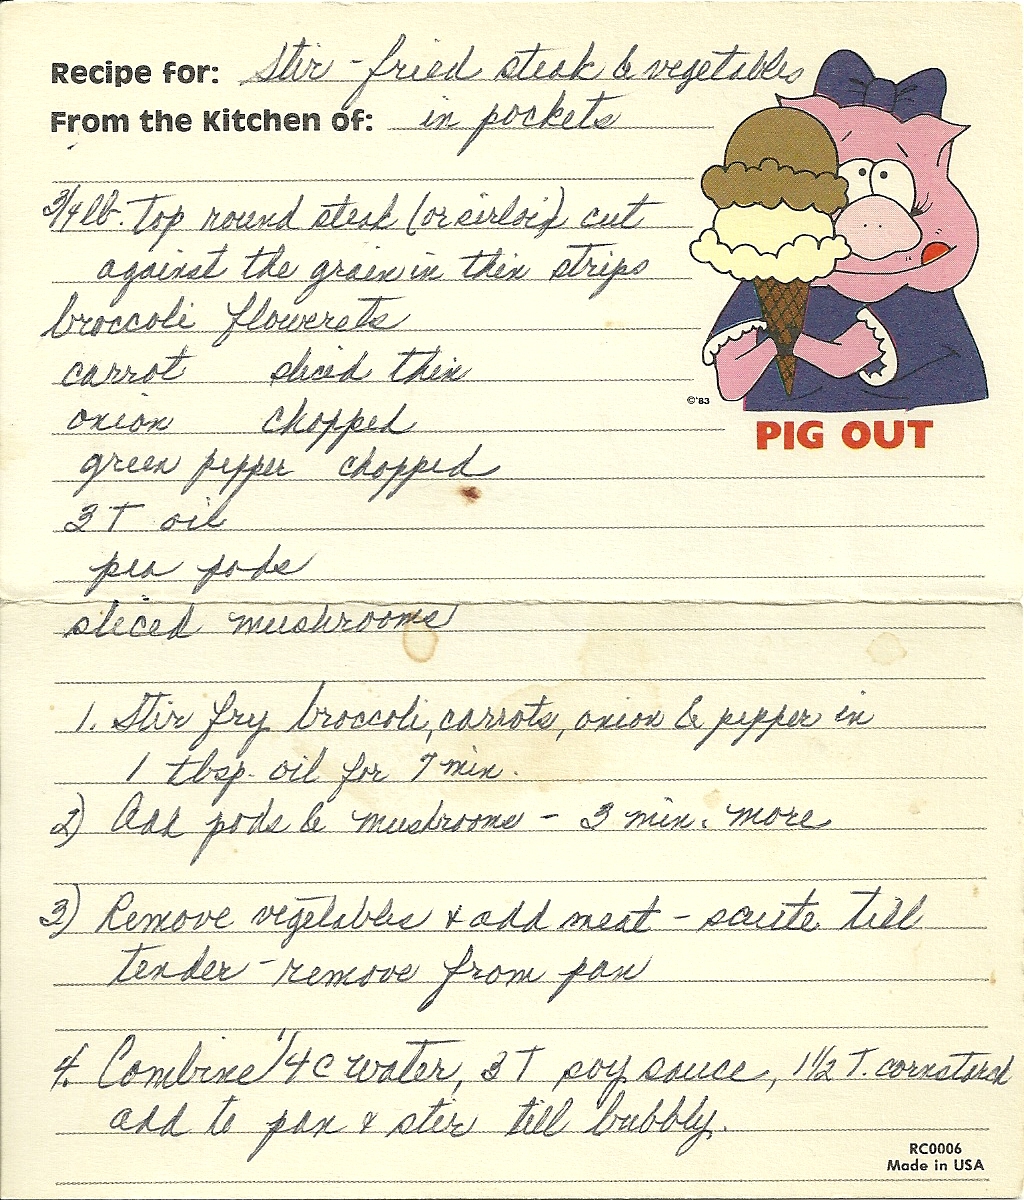 Recipe for: Stir-fried steak & vegetables
From the Kitchen of: in pockets
3/4 lb. Top round steak (or sirloin) cut
against the grain in thin strips
broccoli flowerets
carrot sliced thin
onion chopped
green pepper chopped
3 T oil
pea pods
sliced mushrooms
1. Stir fry broccoli, carrots, onion & pepper in
1 tbsp. oil for 7 min.
2) Add pods & mushrooms - 3 min. more
3) Remove vegetables & add meat - saute till
tender - remove from pan
4. Combine 1/4 c water, 3 T soy sauce, 1 1/2 T. cornstarch
add to pan & stir till bubbly.
©'83
PIG OUT
RC0006
Made in USA